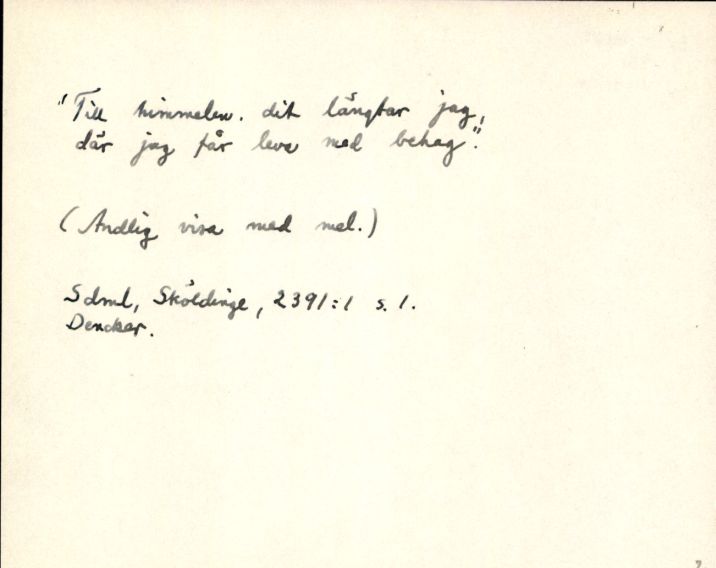 "Till himmelen. dit längtar jag,
där jag får leva med behag".
(Andlig visa med mel.)
Sdml, Sköldinge, 2391:1 s. 1.
Dencker.